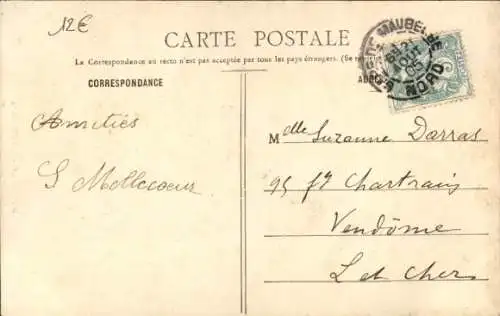 12€
CARTE POSTALE
La Correspondance au recto n'est pas acceptée par tous les pays étrangers. (Se
CORRESPONDANCE
MAUBEUGE
NORD
05
Amitiés
S Mollecoeur
Mdlle Suzanne Darras
95 fg Chartrain
Vendôme
L et Cher